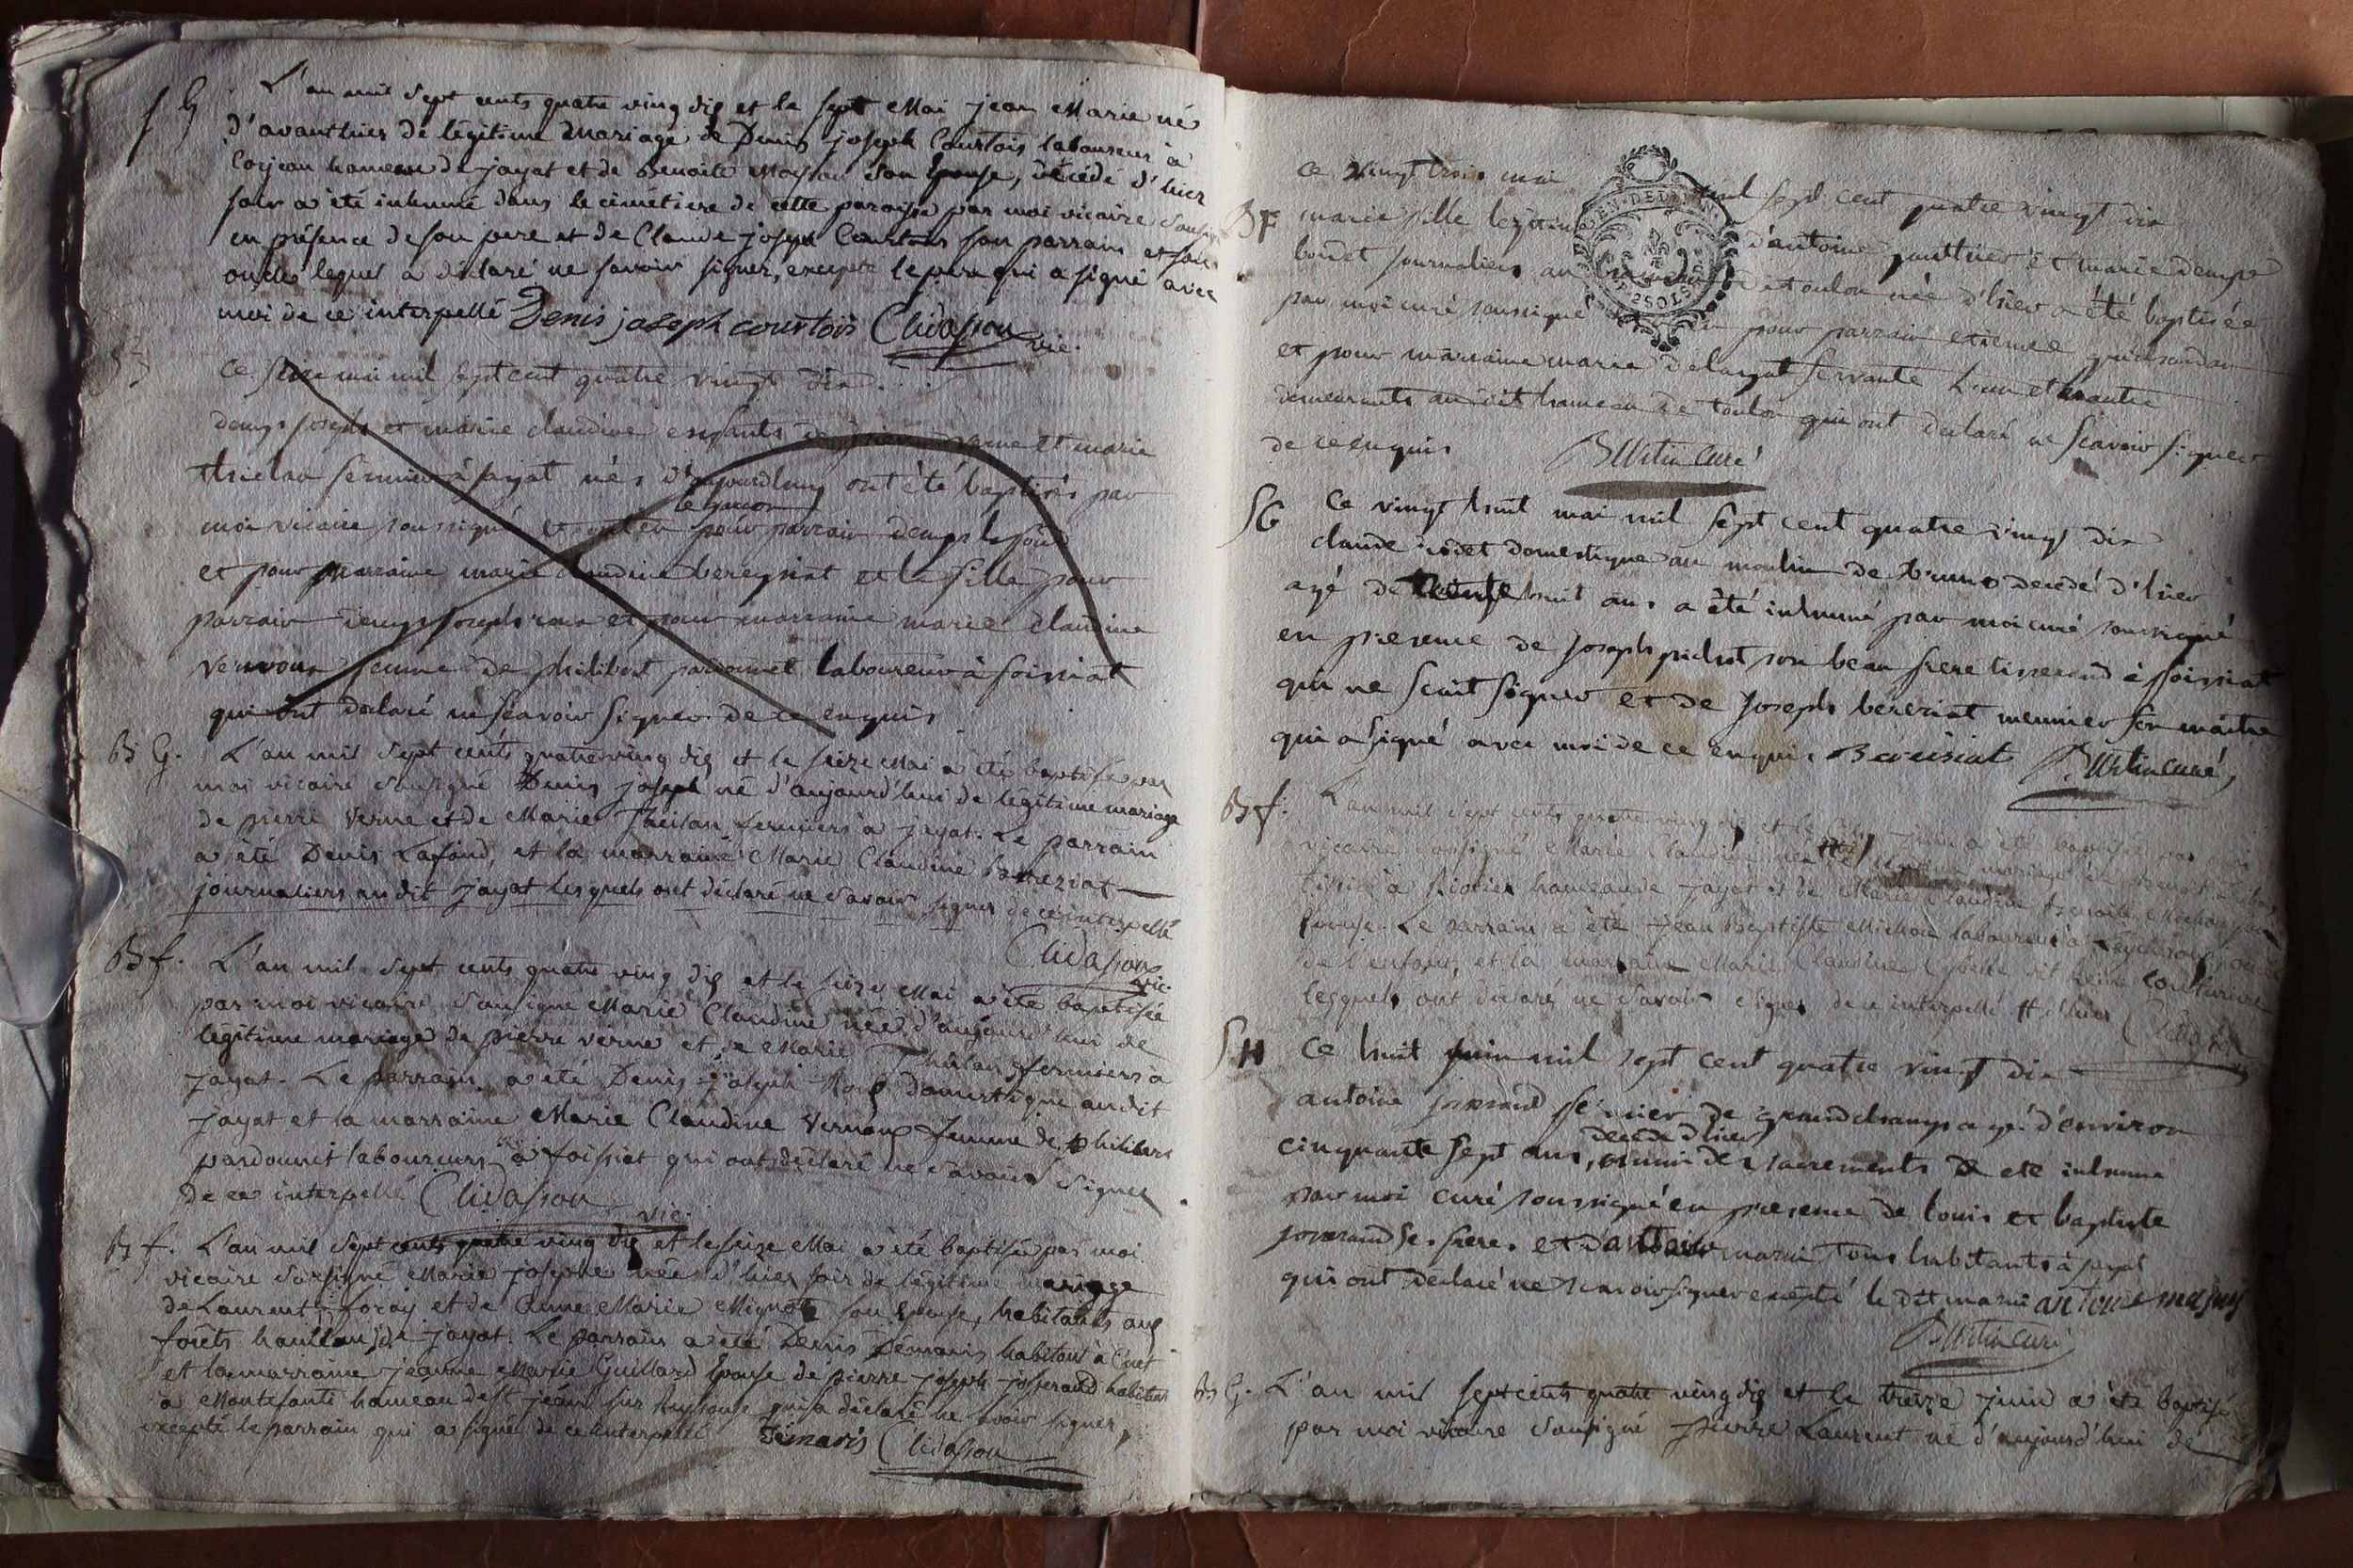 S G
L'an mil sept cents quatre ving dix et le sept Mai jean Marie né
d'avanthier de légitime mariage de Denis joseph Courtois laboureur à
Corjean hameau de jayat et de Benoite son Epouse, décédé d'hier
soir a été inhumé dans le cimétiere de cette paroisse par moi vicaire
en présence de son pere et de Claude joseph Courtois son parrain et son
oncle lequel a déclaré ne savoir signer, excepté le pere qui a signé avec
moi de ce interpellé Denis joseph courtois Clidasson vic.
Ce seize mai mil sept cent quatre vingt dix
denys joseph et marie claudine enfants de pierre verne et marie
thielan fermier à jayat nés d'aujourdhuy ont été baptisés par
le garcon
moi vicaire soussigné et ont eu pour parrain denys lafond
et pour marraine marie claudine bereyziat et la fille pour
parrain denys joseph roux et pour marraine marie claudine
vernoux femme de philibert pardonnet laboureur à foissiat
qui ont declaré ne scavoir signer de ce enquis
B G.
L'an mil sept cents quatre ving dix et le seize Mai a été baptisé par
moi vicaire sousigné Denis joseph né d'aujourd'hui de légitime mariage
de pierre Verne et de Marie Theilan fermiers à jayat. Le parrain
a été Denis Lafond, et la marraine Marie Claudine
journaliers au dit jayat lesquels ont déclaré ne savoir signer de ce interpellé
Clidasson
vic.
B f.
L'an mil sept cents quatre ving dix et le seize Mai a été baptisée
par moi vicaire sousigné Marie Claudine née d'aujourd'hui de
légitime mariage de pierre verne et de Marie Theilan fermiers à
jayat. Le parrain a été Denis joseph Roux domestique au dit
jayat et la marraine Marie Claudine Vernoux femme de philibert
pardonnet laboureurs à foissiat qui ont déclaré ne savoir signer
de ce interpellé Clidasson
vic.
B f.
L'an mil sept cents quatre ving dix et le seize Mai a été baptisée par moi
vicaire sousigné Marie josephe née d'hier soir de légitime mariage
de Laurent Loray et de Anne Marie Mignot son Epouse, habitants aux
forêts hameau de jayat. Le parrain a été Denis Démaris habitant à Cuet
et la marraine jeanne Marie Guillard Epouse de pierre joseph josserand habitant
à Montefanti hameau de St jean sur Reyssouze qui a déclaré ne savoir signer,
excepté le parrain qui a signé de ce interpellé Démaris Clidasson
ce vingt trois mai mil sept cent quatre vingt dix
B F
marie fille legitime d'antoine gauthier et marie denyse
bondet journaliers au hameau de toulon née d'hier a été baptisée
par moi curé soussigné eu pour parrain etienne
et pour marraine marie delayat servante l'un et l'autre
demeurants au dit hameau de toulon qui ont declaré ne scavoir signer
de ce enquis
curé
S G
Ce vingt huit mai mil sept cent quatre vingt dix
claude domestique au moulin de brunos decedé d'hier
agé de trente huit ans a été inhumé par moi curé soussigné
en presence de joseph son beau frere tisserand à foissiat
qui ne scait signer et de joseph bereziat meunier son maitre
qui a signé avec moi de ce enquis Bereisiat curé
B f.
L'an mil sept cents quatre ving dix et le juin a été baptisée par moi
vicaire sousigné Marie Claudine née légitime mariage de
hameau de jayat et de Marie Claudine Benoite Michon son
Epouse. Le parrain a été jean Baptiste Michon laboureur à oncle
de l'enfant, et la marraine Marie Claudine dit couturiere
lesquels ont déclaré ne savoir signer de ce interpellé # d'hier
S H
Ce huit juin mil sept cent quatre vingt dix
antoine josserand fermier de grandchamp agé d'environ
decedé d'hier
cinquante sept ans, muni des sacrements a eté inhumé
par moi curé soussigné en presence de louis et baptiste
josserand ses freres et d'antoine marin tous habitants à jayat
qui ont declaré ne scavoir signer excepté le dit marin antoine
curé
B G.
L'an mil sept cents quatre ving dix et le treize juin a été baptisé
par moi vicaire sousigné pierre Laurent né d'aujourd'hui de